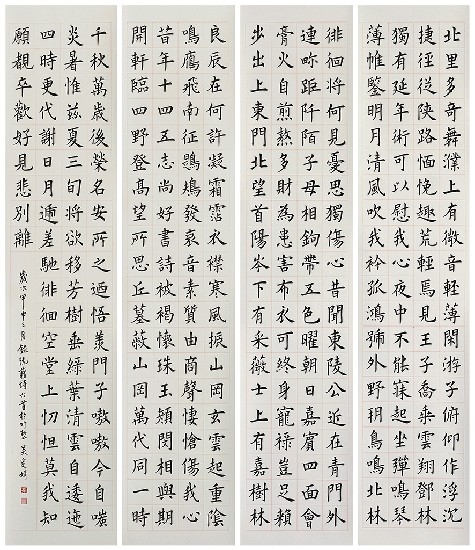 北里多奇舞濮上有微音輕薄閑游子俯仰乍浮沉
捷徑從狹路僶俛趣荒淫焉見王子喬乘雲翔鄧林
獨有延年術可以慰我心夜中不能寐起坐彈鳴琴
薄帷鑒明月清風吹我衿孤鴻號外野翔鳥鳴北林
徘徊將何見憂思獨傷心昔聞東陵公近在青門外
連畛距阡陌子母相鉤帶五色曜朝日嘉賓四面會
膏火自煎熬多財為患害布衣可終身寵祿豈足賴
步出上東門北望首陽岑下有采薇士上有嘉樹林
良辰在何許凝霜霑衣襟寒風振山岡玄雲起重陰
鳴鴈飛南征鶗鴂發哀音素質由商聲悽愴傷我心
昔年十四五志尚好書詩被褐懷珠玉顏閔相與期
開軒臨四野登高望所思丘墓蔽山岡萬代同一時
千秋萬歲後榮名安所之迺悟羨門子噭噭今自嗤
炎暑惟茲夏三旬將欲移芳樹垂綠葉清雲自逶迤
四時更代謝日月遞差馳徘徊空堂上忉怛莫我知
願覩卒歡好見悲別離
歲次甲申